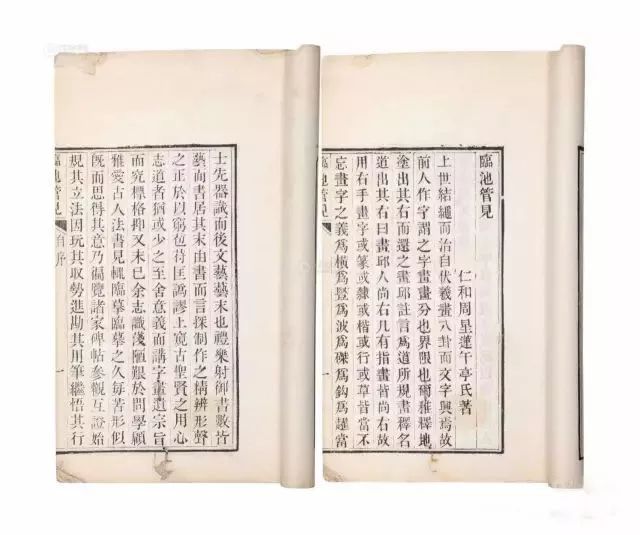 臨池管見
仁和周星蓮午亭氏著
上世結繩而治自伏羲畫八卦而文字興焉故
前人作字謂之字畫畫分也界限也爾雅釋地
塗出其右而還之畫邱註言爲道所規畫釋名
道出其右曰畫邱人尚右凡有指畫皆尚右故
用右手畫字或篆或隸或楷或行或草皆當不
忘畫字之義爲橫爲豎爲波爲磔爲鉤爲趯當
臨池管見 一
士先器識而後文藝藝末也禮樂射御書數皆
藝而書居其末由書而言探制作之精辨形聲
之正於以窮苞待匡譌謬上窺古聖賢之用心
志道者猶或少之至舍意義而講字畫遺宗旨
而究標格抑又末已余志識蔑陋艱於問學顧
雅愛古人法書見輒臨摹臨摹之久每苦形似
旣而思得其意乃徧覽諸家碑帖參觀互證始
規其立法因玩其取勢進勘其用筆繼悟其行
臨池管見 自序 一